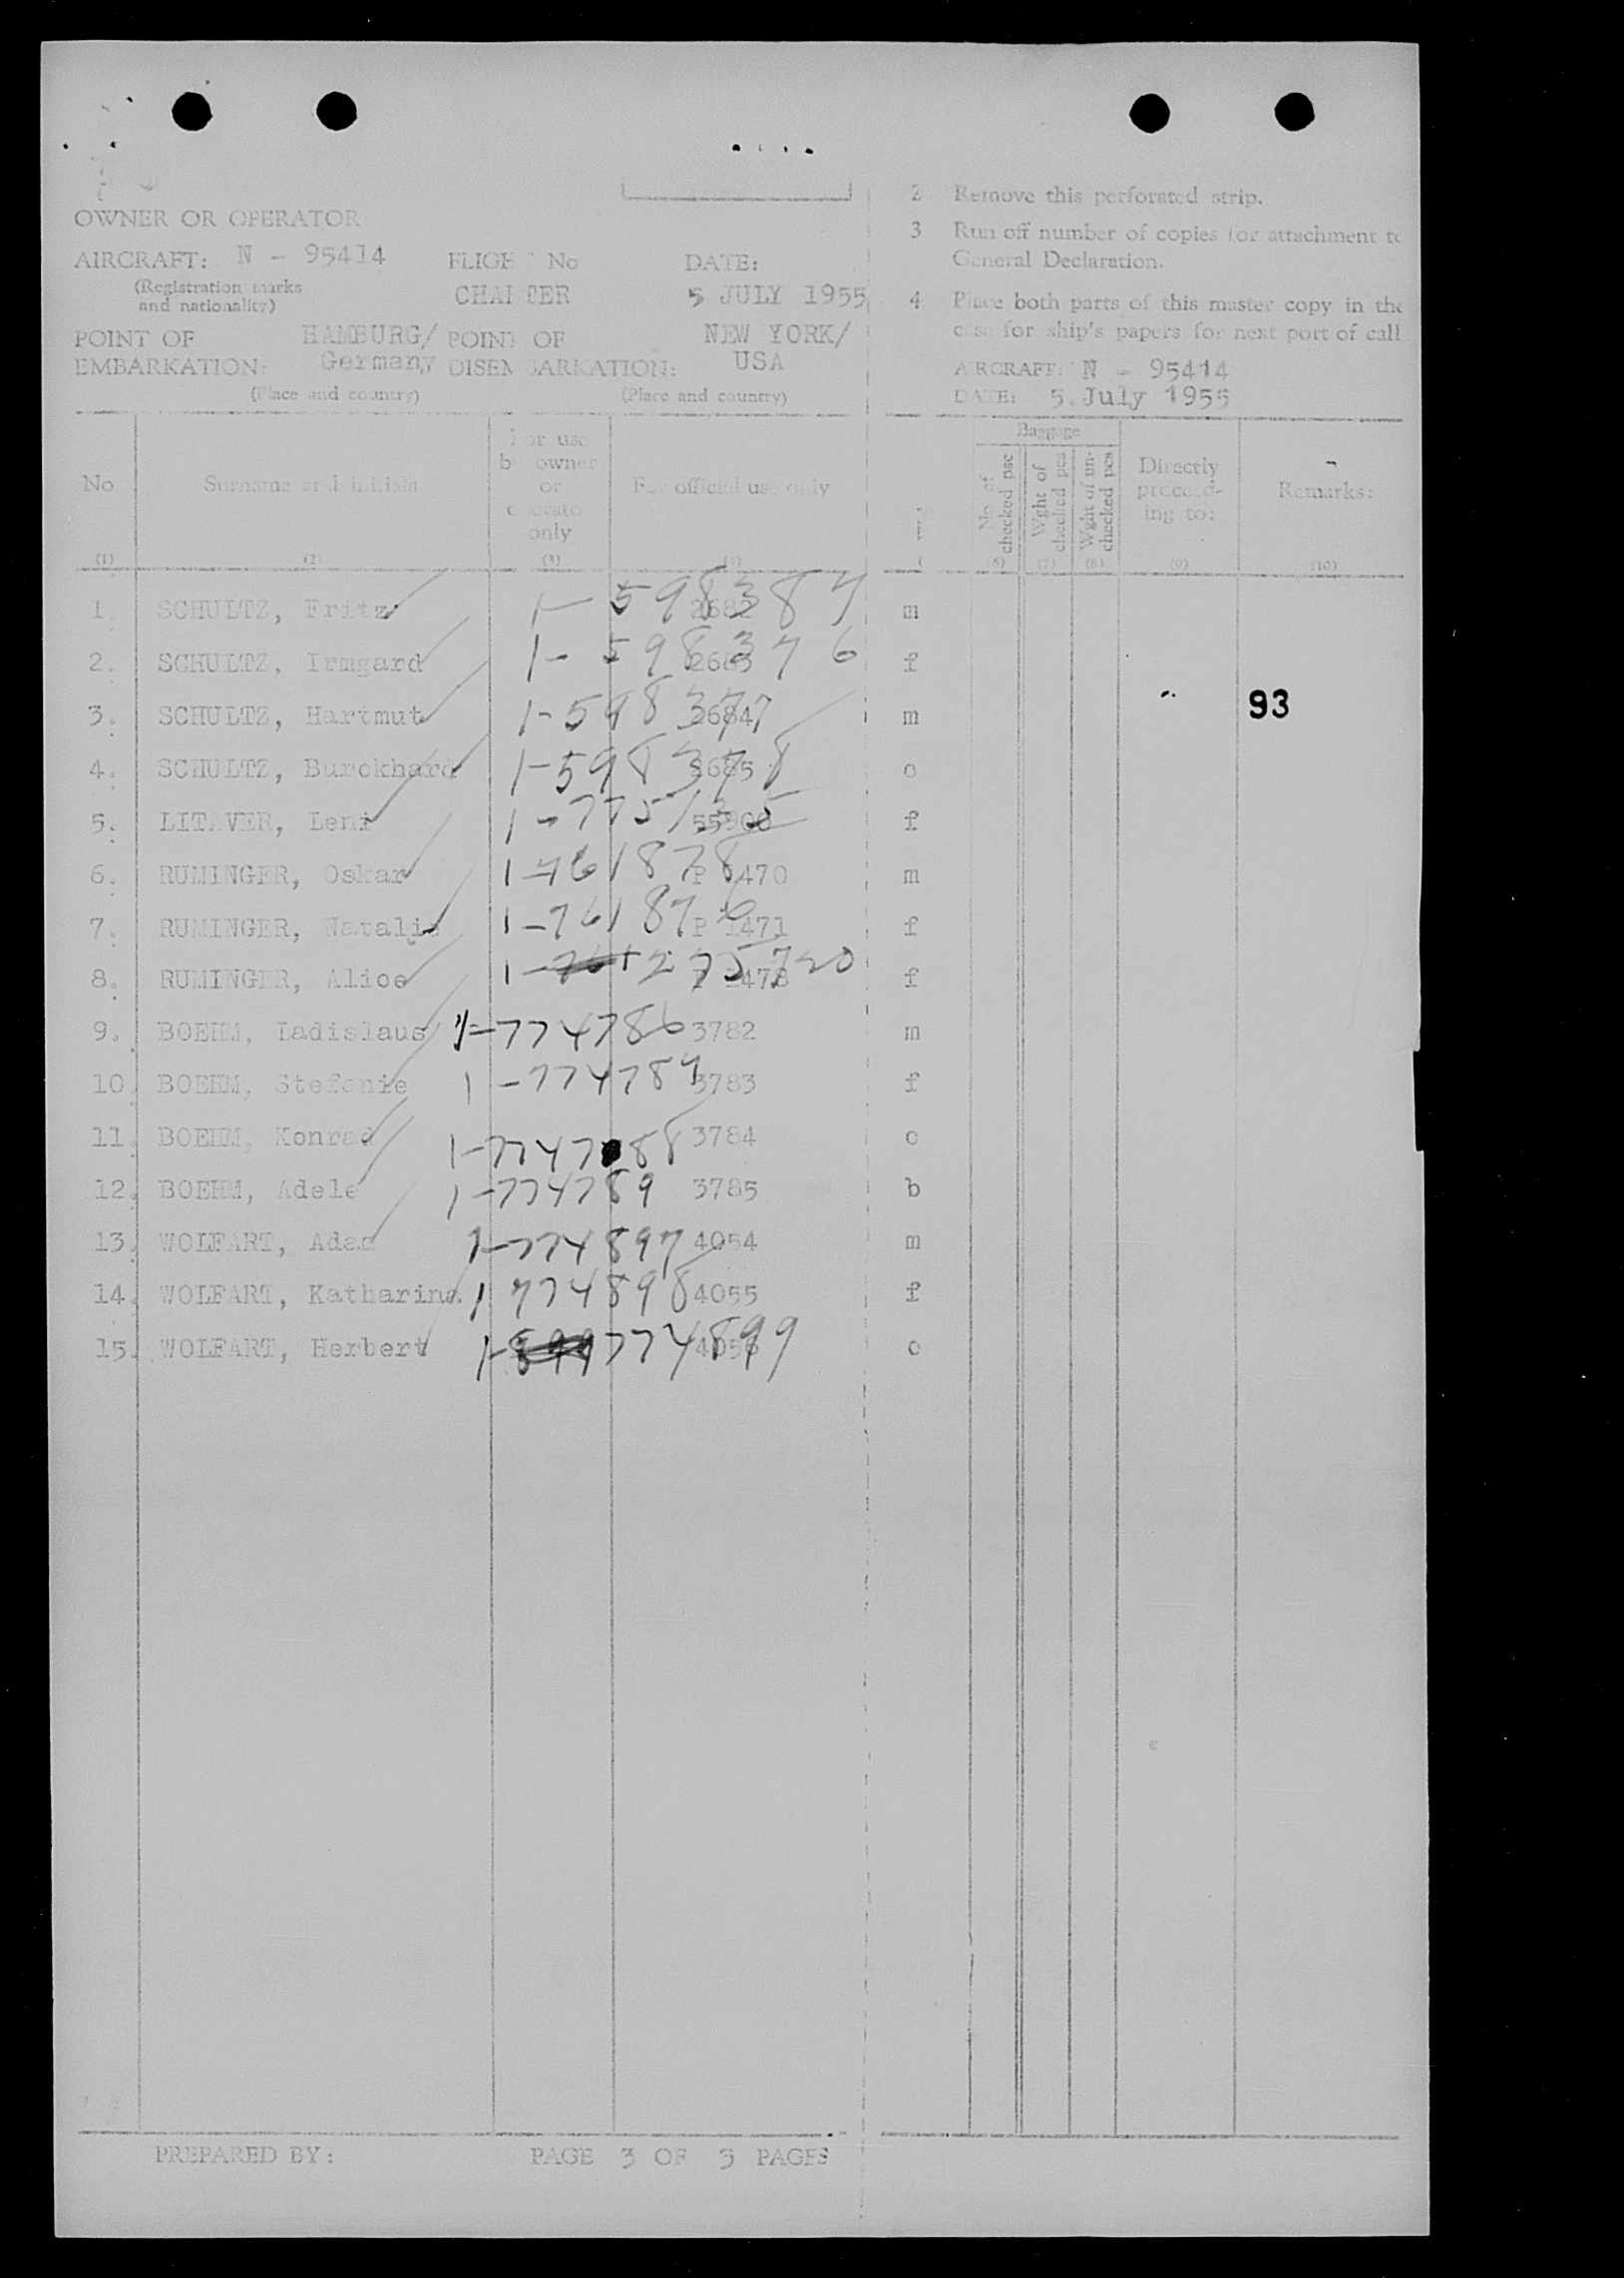 OWNER OR OPERATOR
AIRCRAFT: N - 95414 FLIGHT No DATE:
(Registration marks and nationality) CHARTER 5 JULY 1955
POINT OF EMBARKATION: HAMBURG/ Germany POINT OF DISEMBARKATION: NEW YORK/ USA
(Place and country) (Place and country)
2 Remove this perforated strip.
3 Run off number of copies for attachment to
General Declaration.
4 Place both parts of this master copy in the
case for ship's papers for next port of call
AIRCRAFT: N - 95414
DATE: 5. July 1955
No Surname and initials For use by owner or operator only For official use only Baggage No. of checked pcs Wght of checked pcs Wght of un-checked pcs Directly preceed-ing to: Remarks:
(1) (2) (3) (4) (6) (7) (8) (9) (10)
1. SCHULTZ, Fritz 1-598384 2682 m
2. SCHULTZ, Irmgard 1-598376 2683 f
3. SCHULTZ, Hartmut 1-598377 2684 m
93
4. SCHULTZ, Burckhard 1-598378 2685 c
5. Leni 1-775135 55900 f
6. RUMINGER, Oskar 1-761878 P 1470 m
7. RUMINGER, Natalie 1-761876 P 1471 f
8. RUMINGER, Alice 1-275720 f
9. BOEHM, Ladislaus 1-774786 3782 m
10. BOEHM, Stefanie 1-774787 3783 f
11. BOEHM, Konrad 1-774788 3784 c
12. BOEHM, Adele 1-774789 3785 b
13. WOLFART, Adam 1-774897 4054 m
14. WOLFART, Katharina 1 774898 4055 f
15. WOLFART, Herbert 1-774899 4056 c
PREPARED BY: PAGE 3 OF 3 PAGES